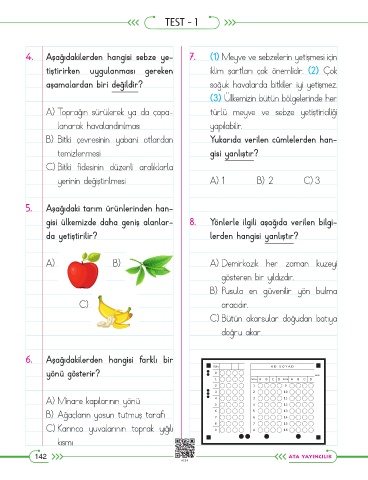 TEST - 1
4. Aşağıdakilerden hangisi sebze ye-
tiştirirken uygulanması gereken
aşamalardan biri değildir?
A) Toprağın sürülerek ya da çapa-
lanarak havalandırılması
B) Bitki çevresinin yabani otlardan
temizlenmesi
C) Bitki fidesinin düzenli aralıklarla
yerinin değiştirilmesi
5. Aşağıdaki tarım ürünlerinden han-
gisi ülkemizde daha geniş alanlar-
da yetiştirilir?
A)
B)
C)
6. Aşağıdakilerden hangisi farklı bir
yönü gösterir?
A) Minare kapılarının yönü
B) Ağaçların yosun tutmuş tarafı
C) Karınca yuvalarının toprak yığılı
kısmı
142
7. (1) Meyve ve sebzelerin yetişmesi için
iklim şartları çok önemlidir. (2) Çok
soğuk havalarda bitkiler iyi yetişmez.
(3) Ülkemizin bütün bölgelerinde her
türlü meyve ve sebze yetiştiriciliği
yapılabilir.
Yukarıda verilen cümlelerden han-
gisi yanlıştır?
A) 1 B) 2 C) 3
8. Yönlerle ilgili aşağıda verilen bilgi-
lerden hangisi yanlıştır?
A) Demirkazık her zaman kuzeyi
gösteren bir yıldızdır.
B) Pusula en güvenilir yön bulma
aracıdır.
C) Bütün akarsular doğudan batıya
doğru akar.
ATA YAYINCILIK